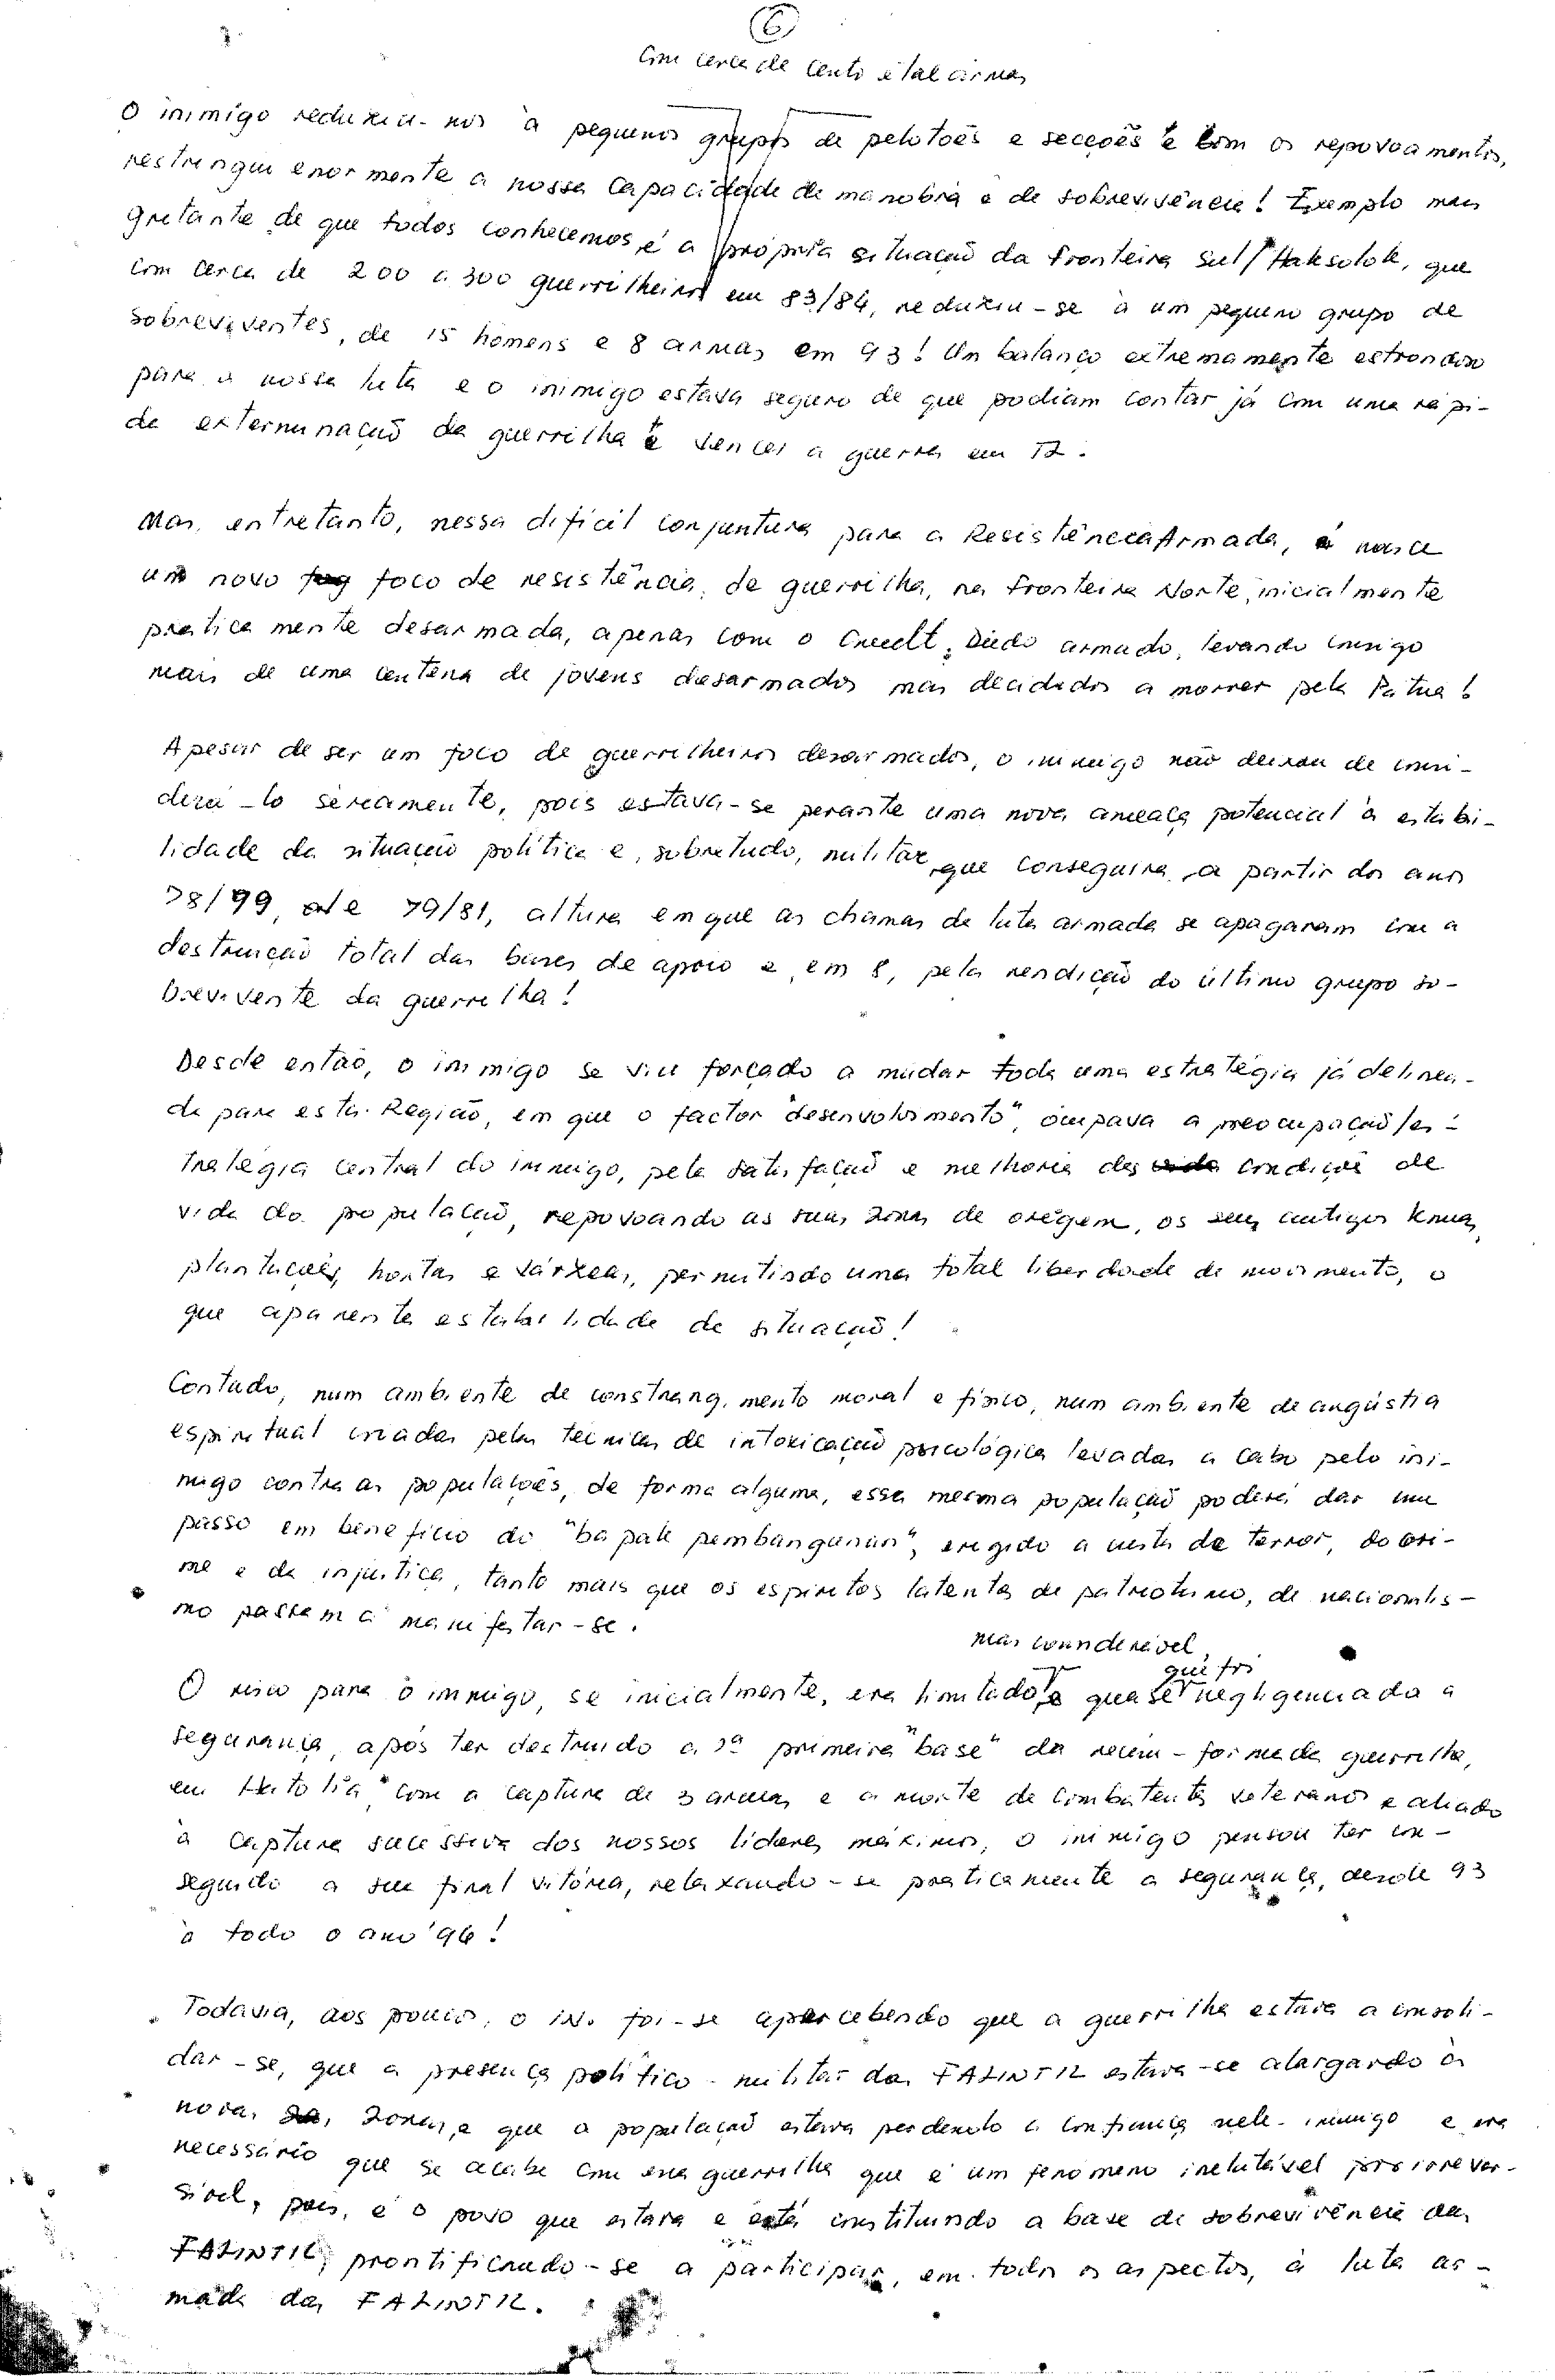 6
com cerca de cento e tal armas
O inimigo reduziu-nos à pequenos grupos de pelotões e secções e com os repovoamentos,
restringiu enormemente a nossa capacidade de manobra e de sobrevivência! Exemplo mais
gritante de que todos conhecemos, é a própria situação da Fronteira Sul/Haksolok, que
com cerca de 200 a 300 guerrilheiros em 83/84, reduziu-se à um pequeno grupo de
sobreviventes, de 15 homens e 8 armas em 93! Um balanço extremamente estrondoso
para a nossa luta e o inimigo estava seguro de que podiam contar já com uma rápi-
da exterminação da guerrilha e vencer a guerra em T2.
Mas, entretanto, nessa difícil conjuntura para a Resistência Armada, nasce
um novo foco de resistência, de guerrilha, na Fronteira Norte, inicialmente
praticamente desarmada, apenas com o Cmdt. Dudo armado, levando consigo
mais de uma centena de jovens desarmados mas decididos a morrer pela Pátria!
Apesar de ser um foco de guerrilheiros desarmados, o inimigo não deixou de consi-
derá-lo sèriamente, pois estava-se perante uma nova ameaça potencial à estabi-
lidade da situação política e, sobretudo, militar, que conseguira, a partir dos anos
78/99, até 79/81, altura em que as chamas de luta armada se apagaram com a
destruição total das bases de apoio e, em 8, pela rendição do último grupo so-
brevivente da guerrilha!
Desde então, o inimigo se viu forçado a mudar toda uma estratégia já delinea-
da para esta Região, em que o factor "desenvolvimento", ocupava a preocupação/es-
tratégia central do inimigo, pela satisfação e melhoria das condiçoẽ de
vida da população, repovoando as suas zonas de origem, os seus antigos knuas,
plantações, hortas e várzeas, permitindo uma total liberdade de movimento, o
que aparenta estabilidade de situação!
Contudo, num ambiente de constrangimento moral e físico, num ambiente de angústia
espiritual criadas pelas técnicas de intoxicação psicológica levadas a cabo pelo ini-
migo contra as populações, de forma alguma, essa mesma população poderá dar um
passo em benefício do "bapak pembangunan", erigido a custa de terror, do cri-
me e da injustiça, tanto mais que os espíritos latentes de patriotismo, de nacionalis-
mo passem a manifestar-se.
mas considerável,
que foi
O risco para o inimigo, se inicialmente, era limitado e quase negligenciada a
segurança, após ter destruido a 1ª primeira "base" da recém-formada guerrilha,
em Hatolia, com a captura de 3 armas e a morte de combatentes veteranos e aliado
à captura sucessiva dos nossos líderes máximos, o inimigo pensou ter con-
seguido a sua final vitória, relaxando-se praticamente a segurança, desde 93
à todo o ano '96!
Todavia, aos poucos, o IN. foi-se apercebendo que a guerrilha estava a consoli-
dar-se, que a presença político-militar das FALINTIL estava-se alargando à
novas zonas, e que a população estava perdendo a confiança nele-inimigo e era
necessário que se acabe com essa guerrilha que é um fenómeno inelutável pois irrever-
sível, pois, é o povo que estava e está constituindo a base de sobrevivência das
FALINTIL, prontificando-se a participar, em todos os aspectos, à luta ar-
mada das FALINTIL.